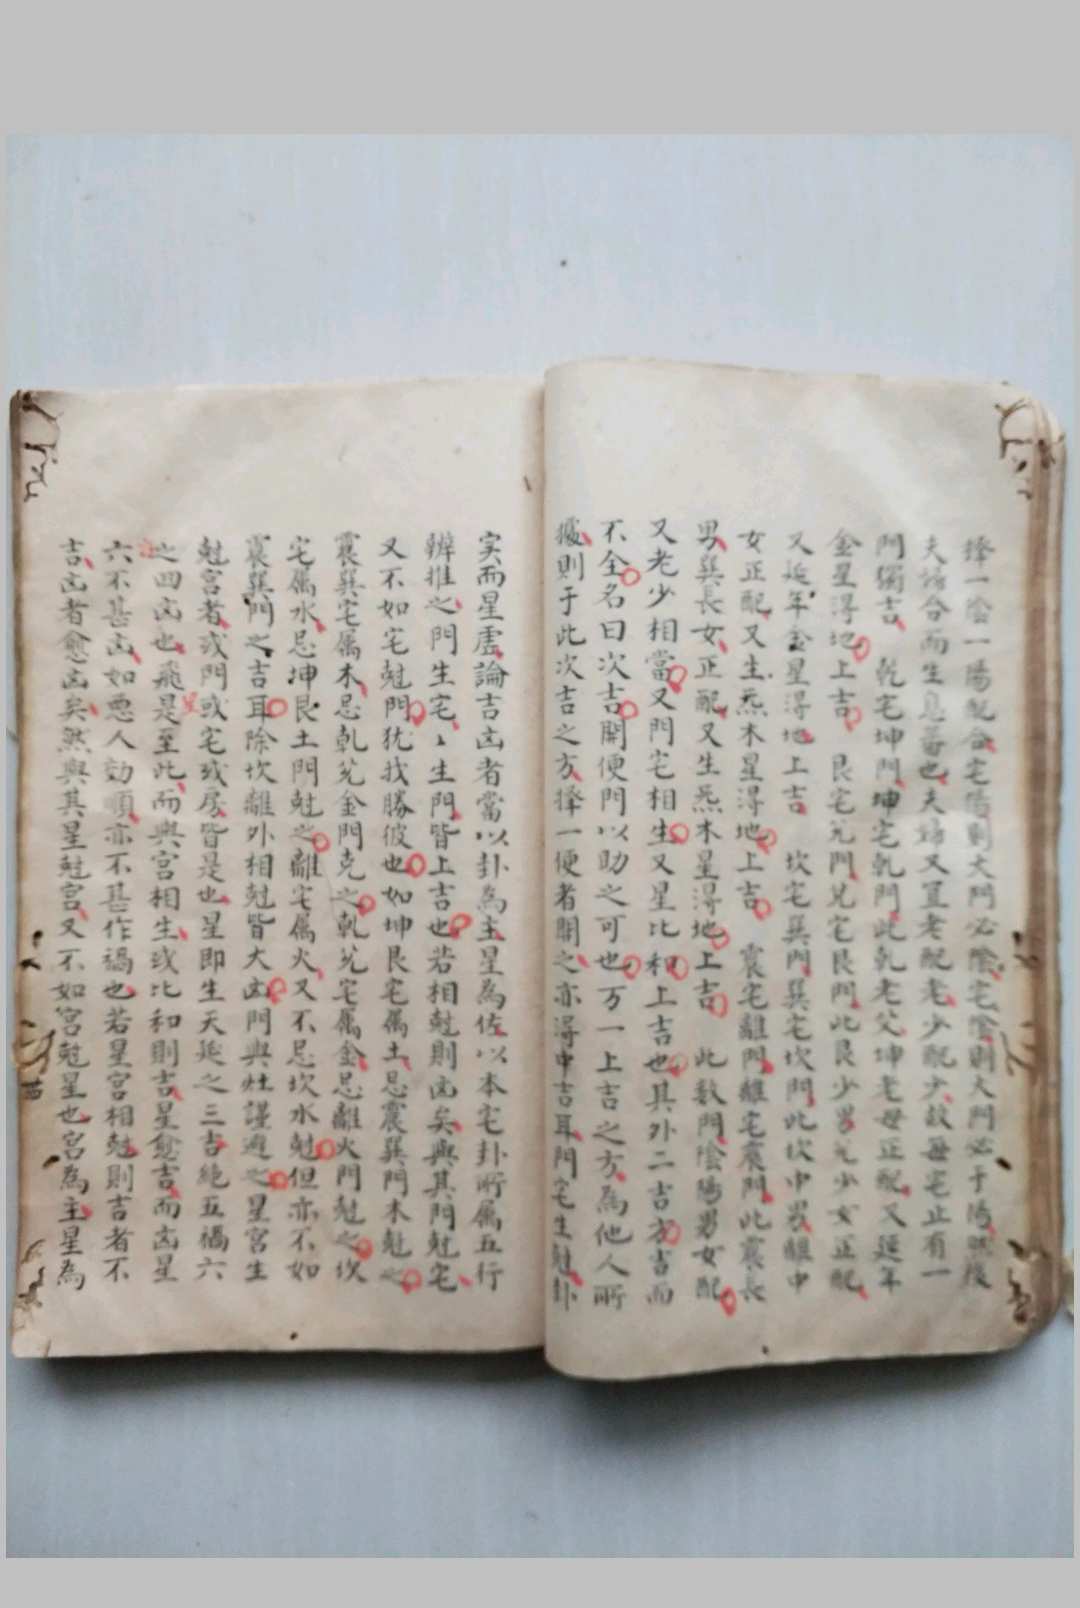 擇一陰一陽配合宅陽則大門必陰宅陰則大門必于陽然後
夫婦合而生息蕃也夫婦又宜老配老少配少故每宅止有一
門獨吉乾宅坤門坤宅乾門此乾老父坤老母正配又延年
金星得地上吉艮宅兌門兌宅艮門此艮少男兌少女正配
又延年金星得地上吉坎宅巽門巽宅坎門此坎中男離中
女正配又生炁木星得地上吉震宅離門離宅震門此震長
男巽長女正配又生炁木星得地上吉此数門陰陽男女配
又老少相當又門宅相生又星比和上吉也其外二吉方吉而
不全名曰次吉開便門以助之可也万一上吉之方為他人所
據則于此次吉之方擇一便者開之亦得中吉耳門宅生尅卦
实而星虛論吉凶者當以卦為主星為佐以本宅卦所属五行
辨推之門生宅〻生門皆上吉也若相尅則凶矣與其門尅宅
又不如宅尅門犹我勝彼也如坤艮宅属土忌震巽門木尅之
震巽宅属木忌乾兌金門克之乾兌宅属金忌離火門尅之坎
宅属水忌坤艮土門尅之離宅属火又不忌坎水尅但亦不如
震巽門之吉耳除坎離外相尅皆大凶門與灶謹避之星宮生
尅宮者或門或宅或房皆是也星即生天延之三吉絶五禍六
之四凶也飛星是至此而與宮相生或比和則吉星愈吉而凶星
六不甚凶如悪人効順亦不甚作禍也若星宮相尅則吉者不
吉凶者愈凶矣然與其星尅宮又不如宮尅星也宮為主星為